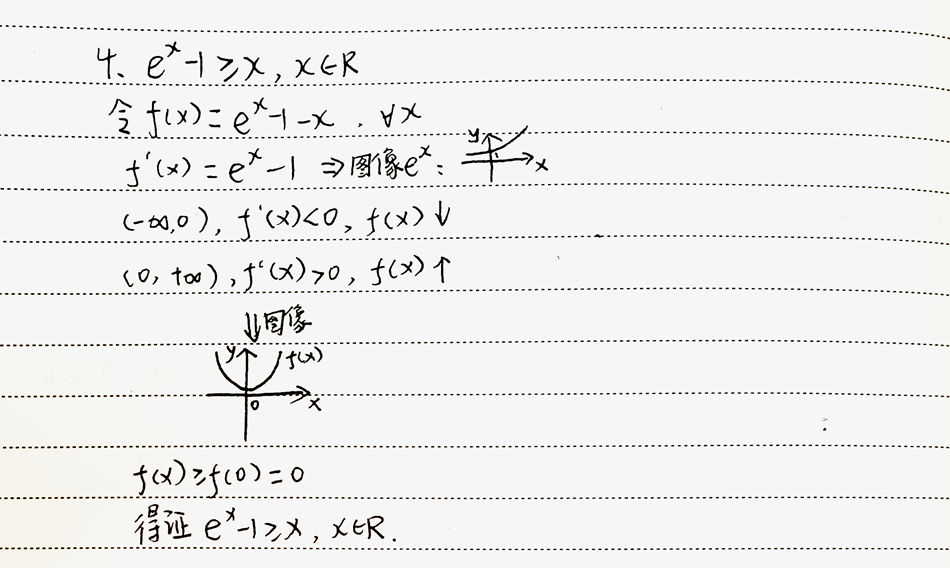 4、e^x-1≥x, x∈R
令f(x)=e^x-1-x, ∀x
f'(x)=e^x-1 ⇒图像e^x: y x
(-∞,0), f'(x)<0, f(x)↓
(0,+∞), f'(x)>0, f(x)↑
⇓图像
y f(x)
0 x
f(x)≥f(0)=0
得证 e^x-1≥x, x∈R.